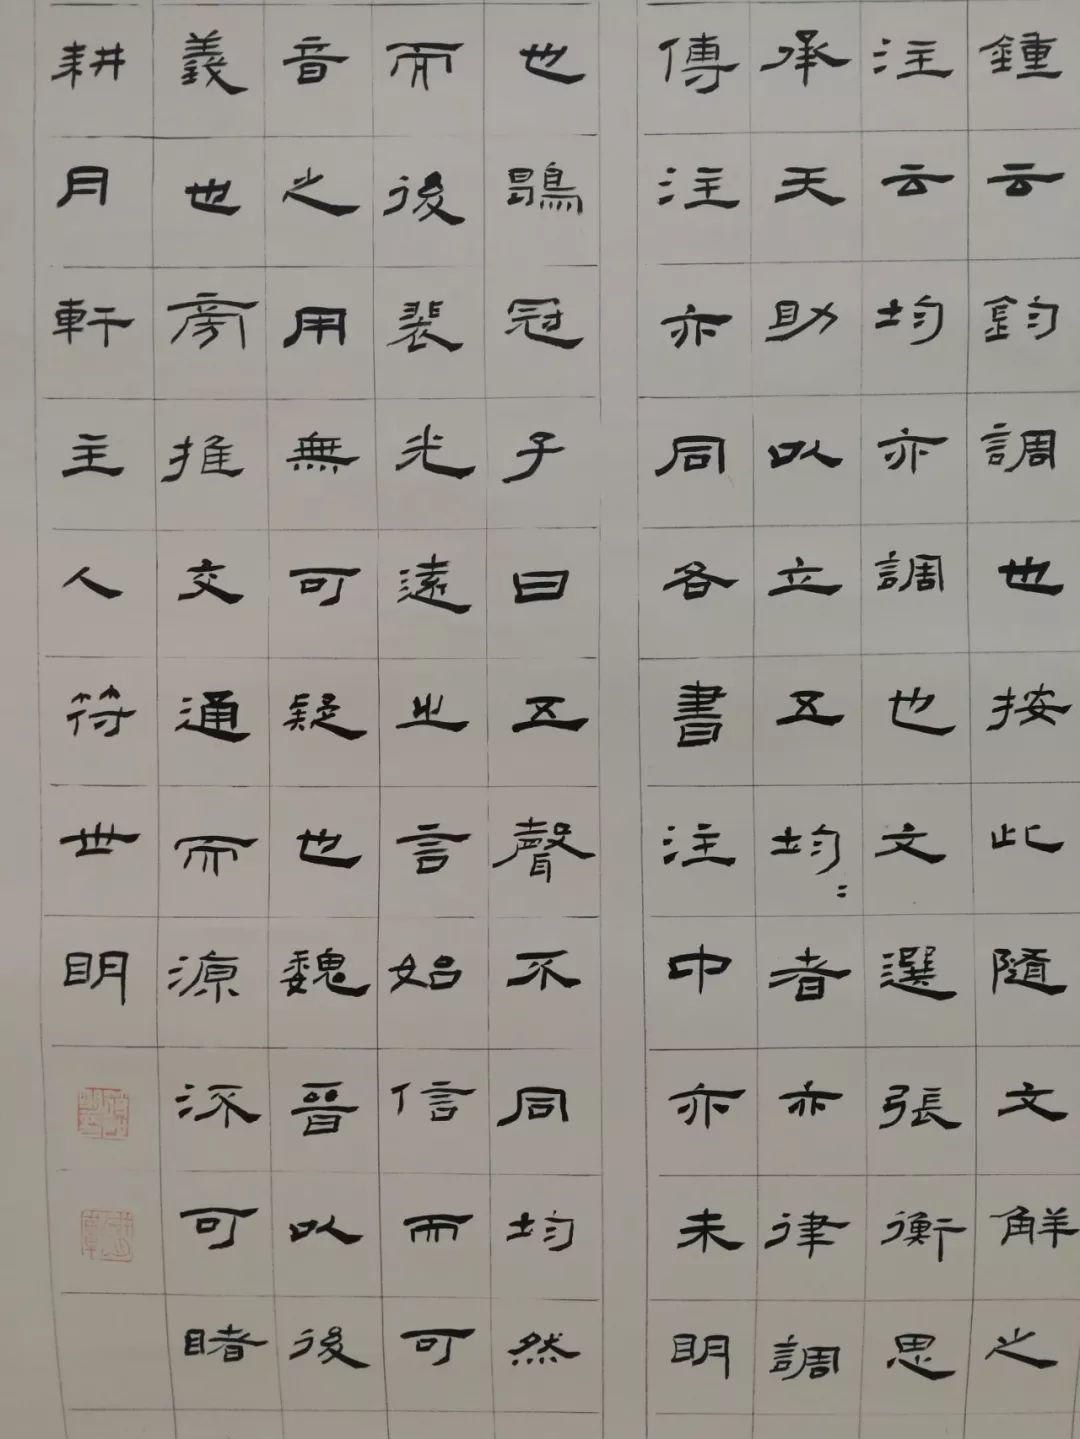 鍾云鈞調也按此隨文解之
注云均亦調也文選張衡思
承天助以立五均均者亦律調
傳注亦同各書注中亦未明
也鶡冠子曰五聲不同均然
而後裴光遠之言始信而可
音之用無可疑也魏晉以後
義也旁推交通而源流可睹
耕月軒主人符世明